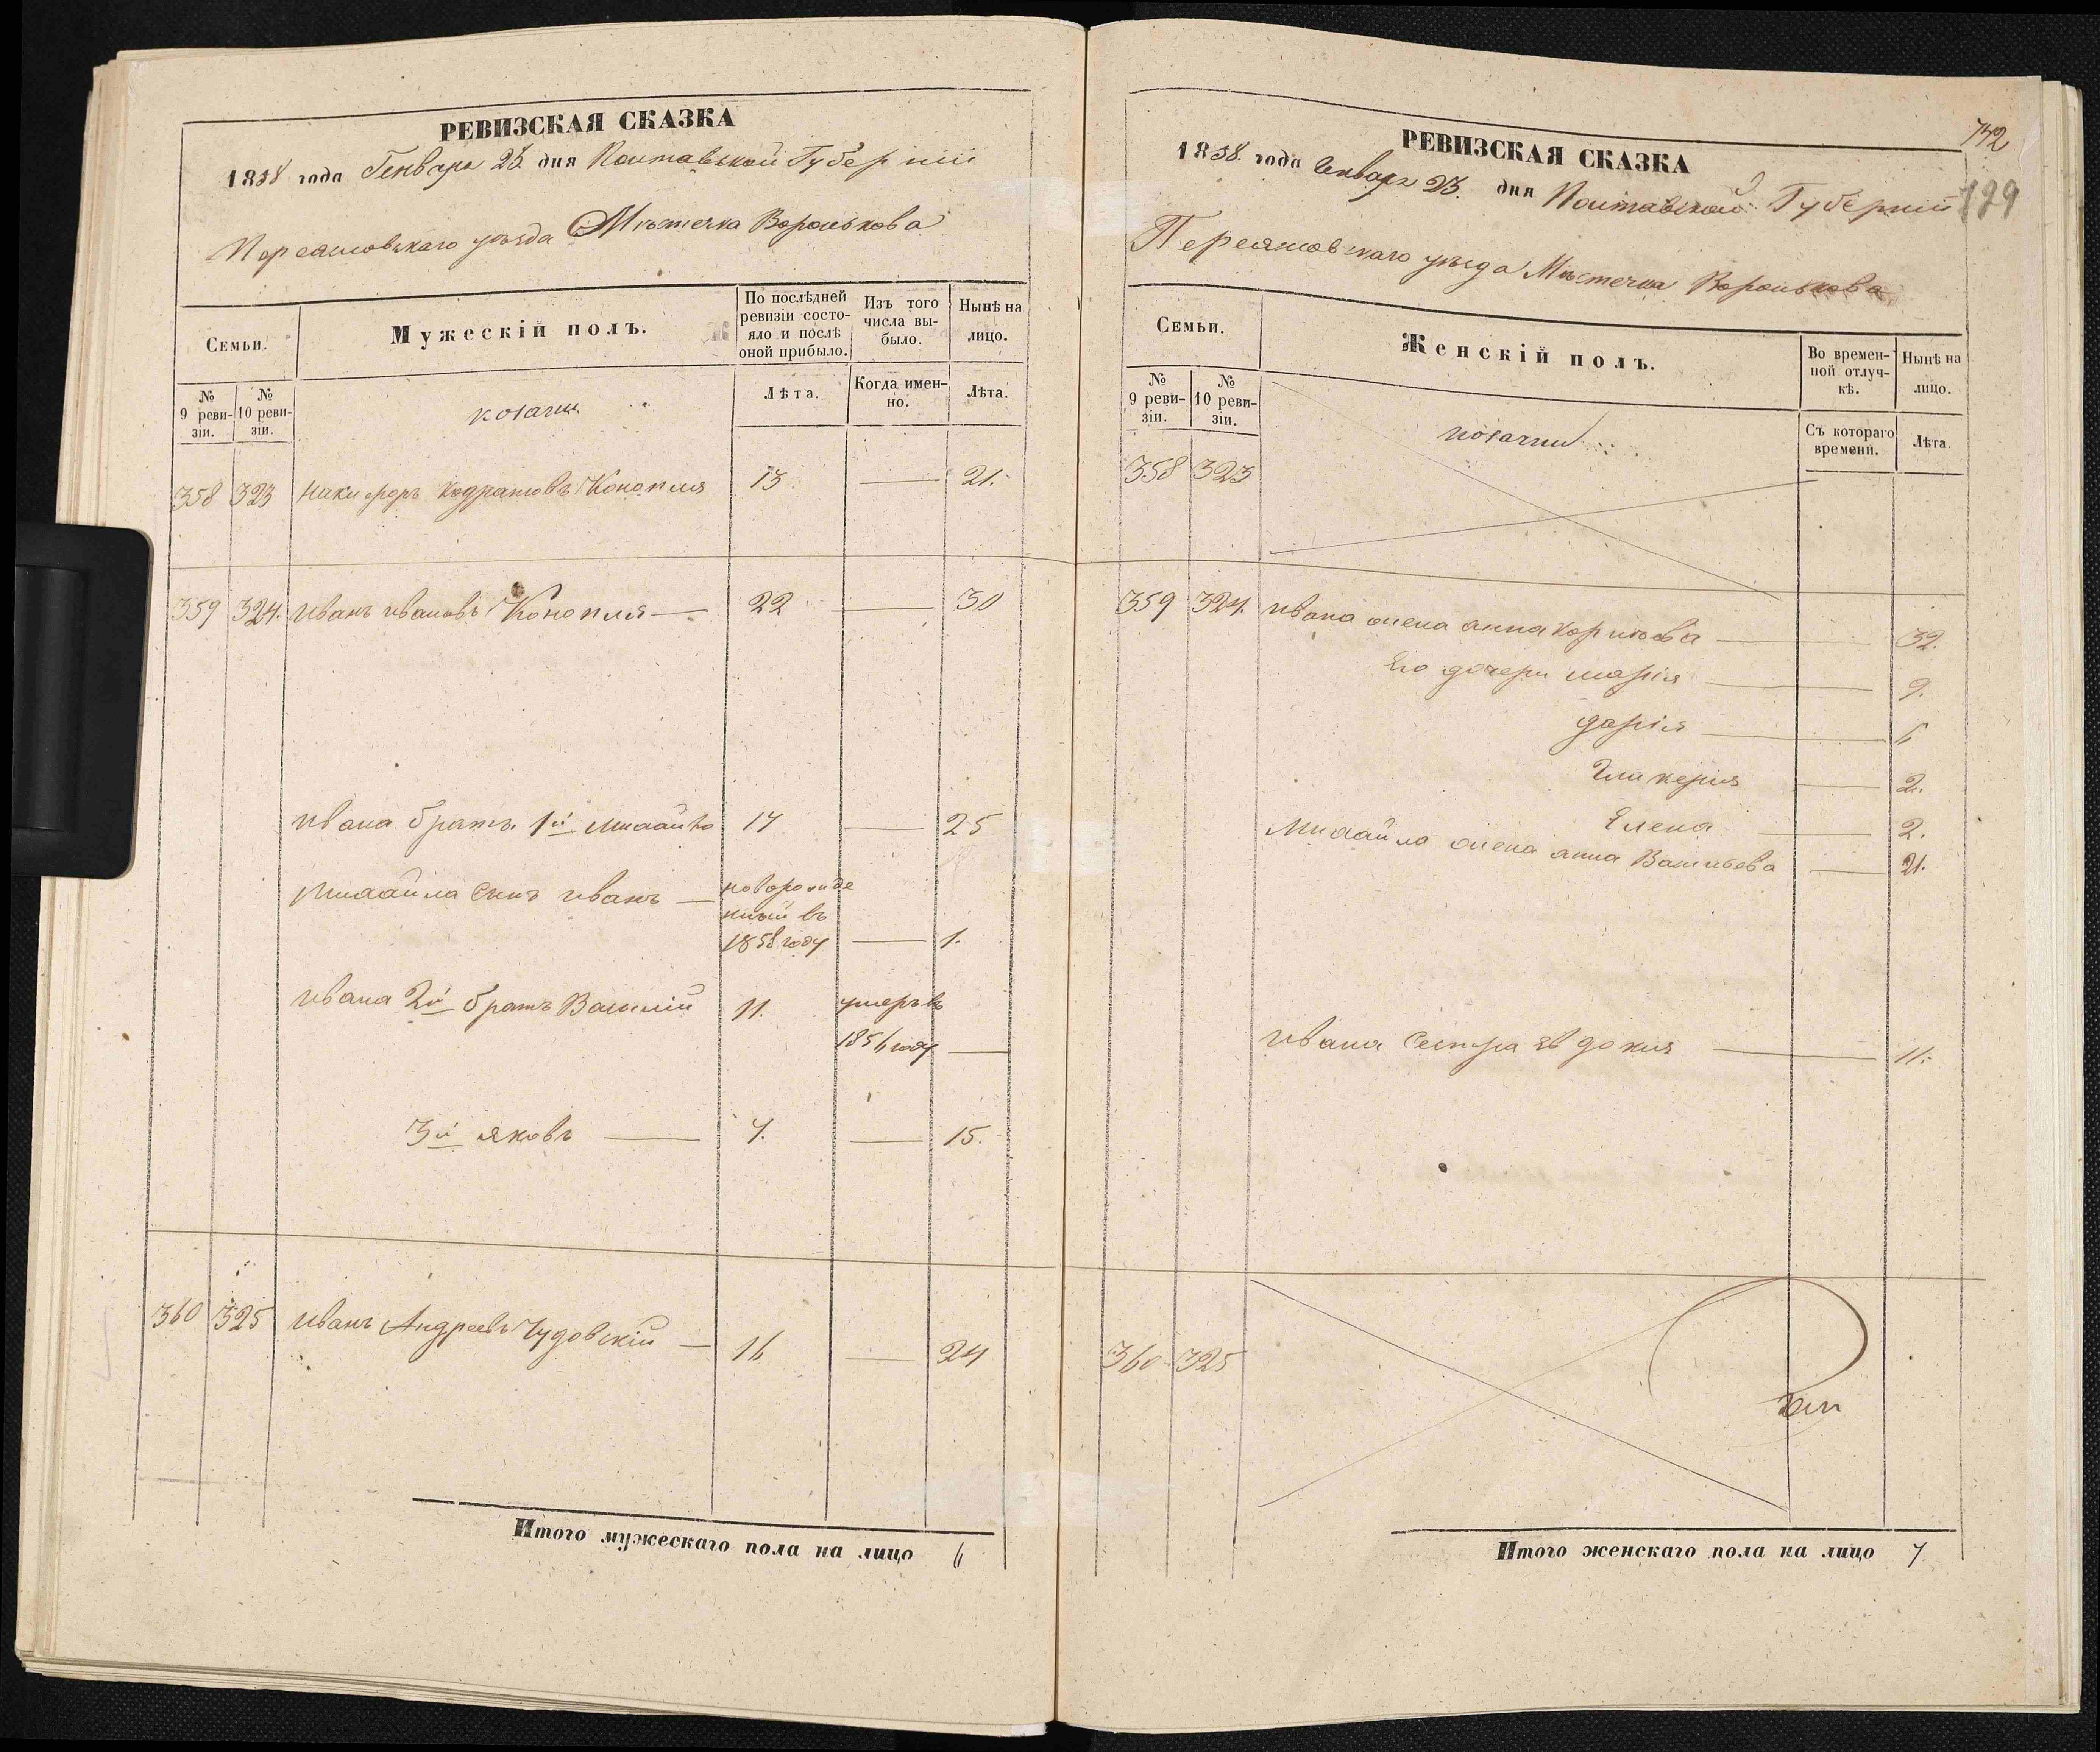 РЕВИЗСКАЯ СКАЗКА
1858 года Генваря 23 дня Полтавской Губерніи
Переяславскаго уезда Мѣстечка Воронькова
Семьи.
Мужескій полъ.
По послѣдней ревизіи состояло и послѣ оной прибыло.
Изъ того числа выбыло.
Нынѣ на лицо.
№ 9 ревизіи.
№ 10 ревизіи.
козаки
Лѣта.
Когда именно.
Лѣта.
358 323 Никифоръ Кодратовъ Конопля 13 — 21.
359 324. Иванъ Ивановъ Конопля — 22 — 30
Ивана братъ 1й Михайло 17 — 25
Михайла Синъ Иванъ — новорожде
нный въ
1858 году — 1.
Ивана 2й братъ Василій 11. умеръ въ
1856 году —
3й Яковъ — 7. — 15.
360 325 Иванъ Андреевъ Чудовскій — 16 — 24
Итого мужескаго пола на лицо 6
742
129
РЕВИЗСКАЯ СКАЗКА
1858. года Генваря 23. дня Полтавской Губерніи
Переяславскаго уезда Мѣстечка Воронькова
Семьи.
Женскій полъ.
Во временной отлучкѣ.
Нынѣ на лицо.
№ 9 ревизіи.
№ 10 ревизіи.
козачки
Съ котораго времени.
Лѣта.
358 323
359 324. Ивана жена Анна — 32.
Его дочери Марія — 9.
Дарія — 6
Гликерія — 2.
Елена — 2.
Михайла жена Анна Васильева — 21.
Ивана Сестра Евдокия — 11.
360 325
Итого женскаго пола на лицо 7